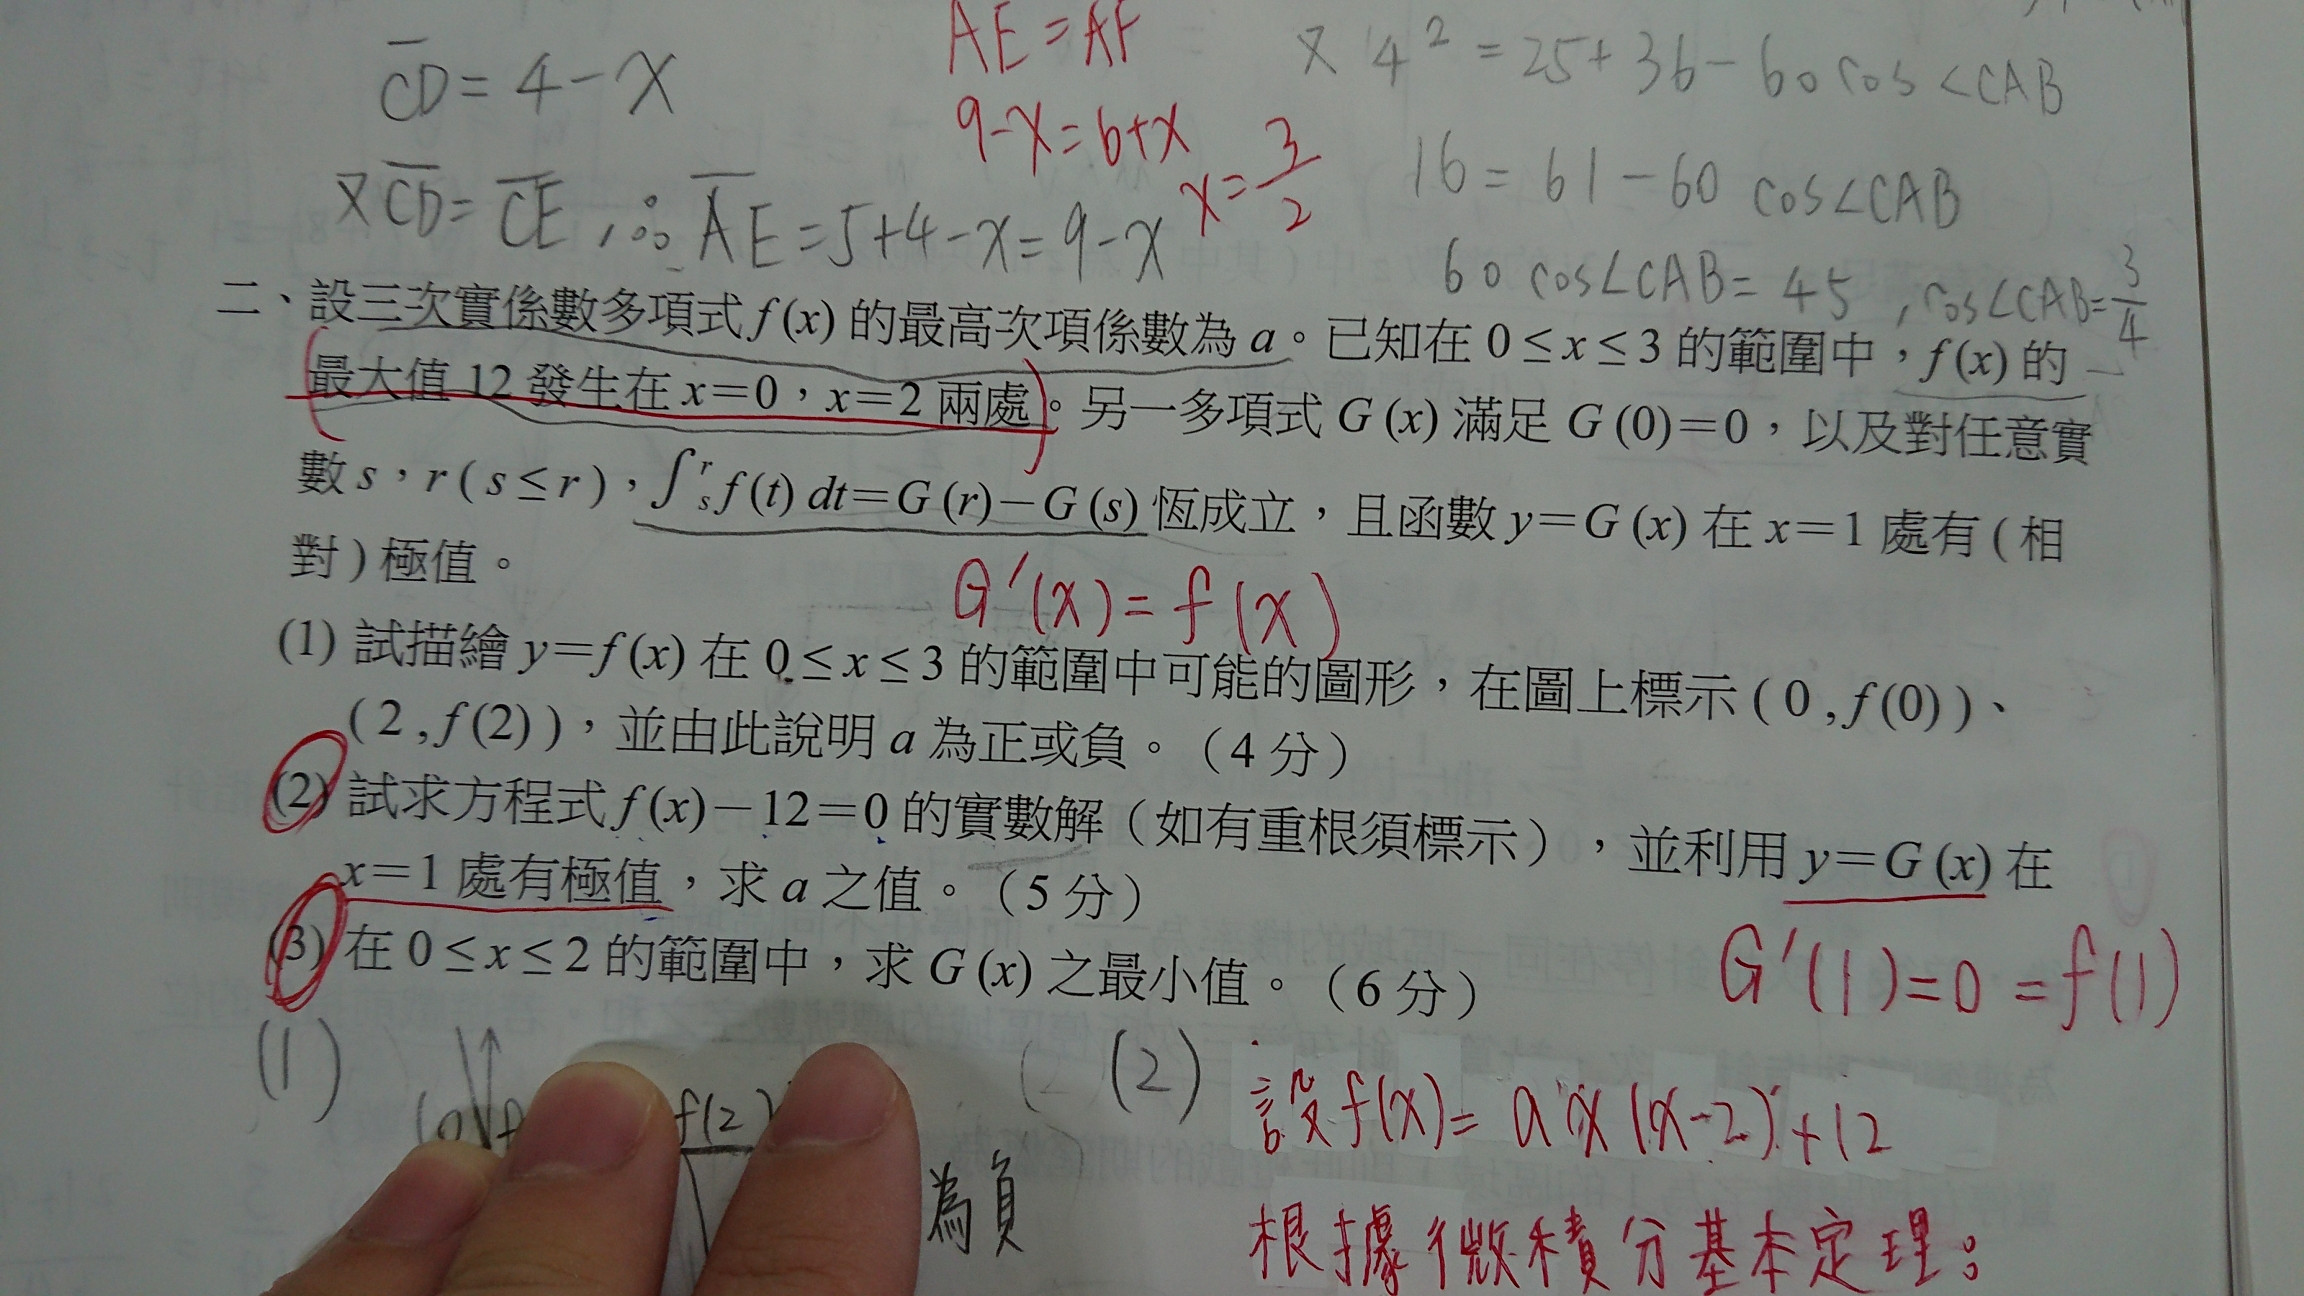 CD = 4 - x
又CD = CE, ∴ AE = 5+4-x = 9-x
AE = AF
9-x = 6+x
x = 3/2
又 4² = 25+36-60cos∠CAB
16 = 61-60 cos∠CAB
60 cos∠CAB = 45, cos∠CAB = 3/4
二、設三次實係數多項式f(x)的最高次項係數為a。已知在0≤x≤3的範圍中,f(x)的
最大值12發生在x=0,x=2兩處。另一多項式G(x)滿足G(0)=0,以及對任意實
數s,r(s≤r),∫ʳₛf(t)dt=G(r)-G(s)恆成立,且函數y=G(x)在x=1處有(相
對)極值。
G'(x) = f(x)
(1) 試描繪y=f(x)在0≤x≤3的範圍中可能的圖形,在圖上標示(0,f(0))、
(2,f(2)),並由此說明a為正或負。(4分)
(2) 試求方程式f(x)-12=0的實數解(如有重根須標示),並利用y=G(x)在
x=1處有極值,求a之值。(5分)
(3) 在0≤x≤2的範圍中,求G(x)之最小值。(6分)
G'(1) = 0 = f(1)
(1)
f(2)
為負
(2) 設f(x) = ax(x-2)+12
根據微積分基本定理: